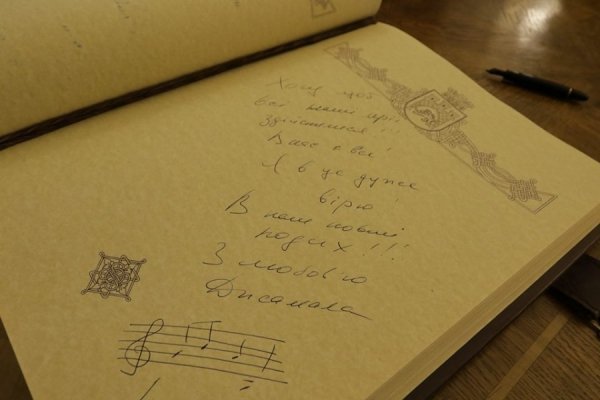 Хочу щоб
всі наші мрії
здійснилися!!
Вас я всі!
Я в це дуже
вірю!
В наш новий
подих!!!
З любов'ю
Джамала